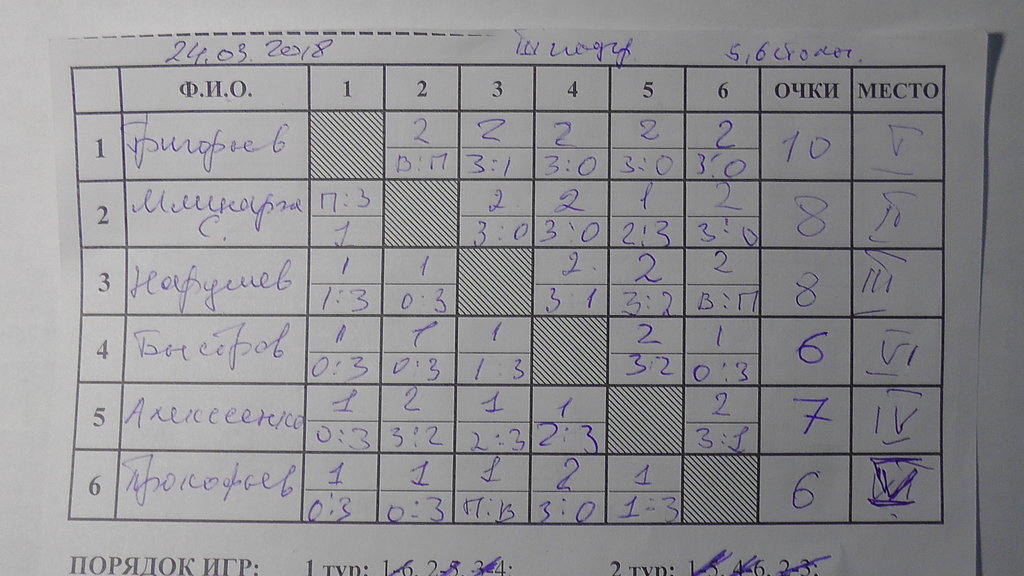 24.03.2018 5,6 столы.
Ф.И.О. 1 2 3 4 5 6 ОЧКИ МЕСТО
1 Григорьев 2 2 2 2 2 10 I
В:П 3:1 3:0 3:0 3:0
2 П:3 2 2 1 2 8 II
С. 1 3:0 3:0 2:3 3:0
3 Нарушев 1 1 2 2 2 8 III
1:3 0:3 3:1 3:2 В:П
4 Быстров 1 1 1 2 1 6 VI
0:3 0:3 1:3 3:2 0:3
5 Алексеенко 1 2 1 1 2 7 IV
0:3 3:2 2:3 2:3 3:1
6 Прокофьев 1 1 1 2 1 6
0:3 0:3 П:В 3:0 1:3
ПОРЯДОК ИГР: 1 тур: 1-6, 2-5, 3-4; 2 тур: 1-5, 4-6, 2-3;